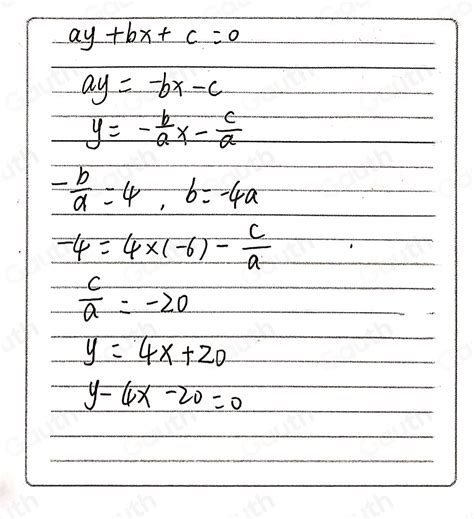 ay + bx + c = 0
ay = -bx - c
y = -b/a x - c/a
-b/a = 4 , b = -4a
-4 = 4×(-6) - c/a
c/a = -20
y = 4x + 20
y - 4x - 20 = 0